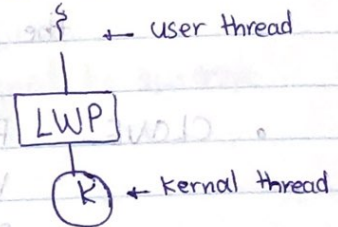 ← user thread
LWP
K ← kernal thread